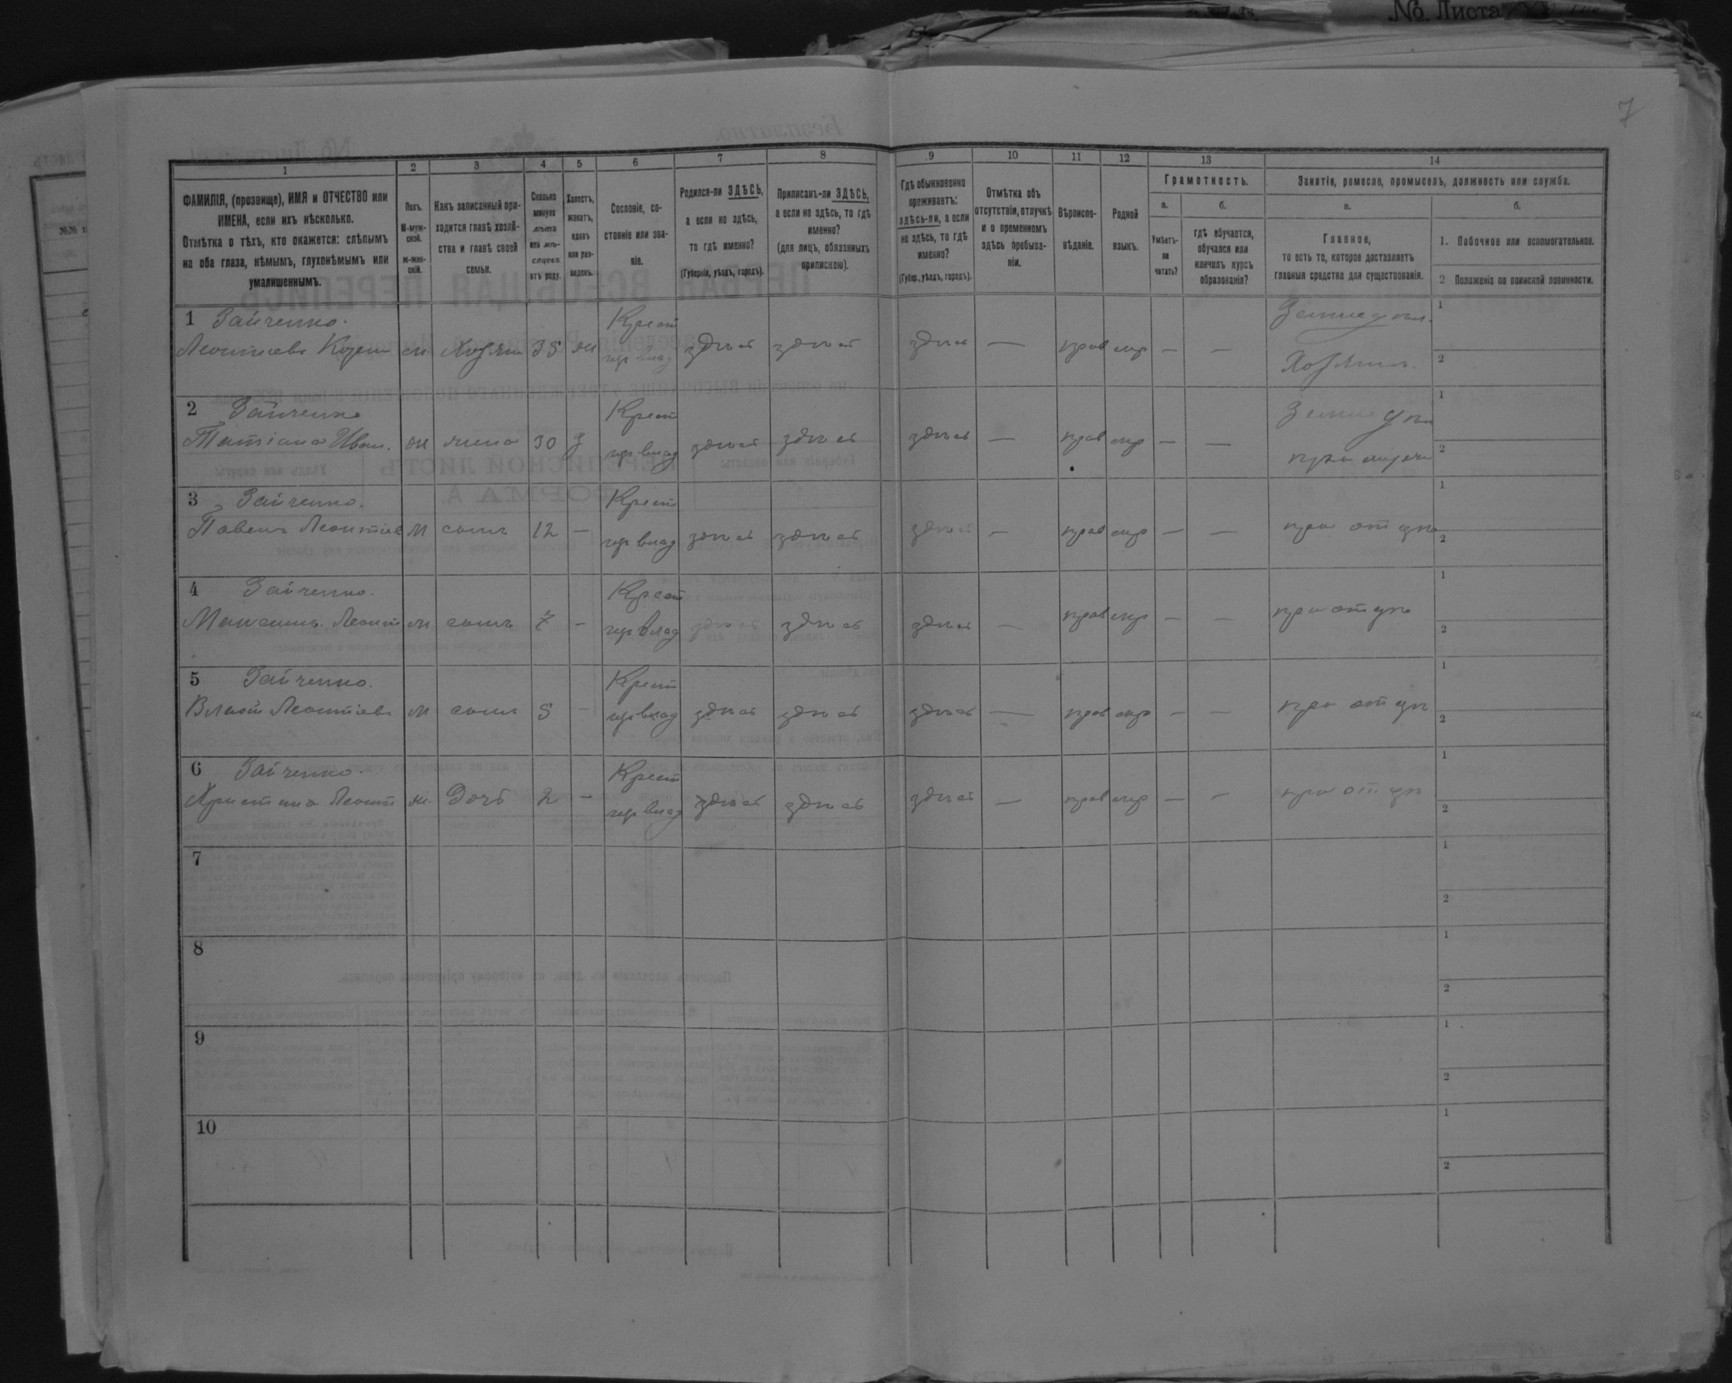 № Листа
7
1 2 3 4 5 6 7 8 9 10 11 12 13 14
ФАМИЛІЯ, (прозвище), ИМЯ и ОТЧЕСТВО или
ИМЕНА, если ихъ нѣсколько.
Отмѣтка о тѣхъ, кто окажется: слѣпымъ
на оба глаза, нѣмымъ, глухонѣмымъ или
умалишеннымъ.
Полъ.
М-муж-
ской.
Ж-жен-
скій.
Какъ записанный при-
ходится главѣ хозяй-
ства и главѣ своей
семьи.
Сколько
минуло
лѣтъ
или мѣ-
сяцевъ
отъ роду.
Холостъ,
женатъ,
вдовъ
или раз-
веденъ.
Сословіе, со-
стояніе или зва-
ніе.
Родился-ли ЗДѢСЬ,
а если не здѣсь,
то гдѣ именно?
(Губернія, уѣздъ, городъ).
Приписанъ-ли ЗДѢСЬ,
а если не здѣсь, то гдѣ
именно?
(для лицъ, обязанныхъ
припискою).
Гдѣ обыкновенно
проживаетъ:
здѣсь-ли, а если
не здѣсь, то гдѣ
именно?
(Губерн., уѣздъ, городъ).
Отмѣтка объ
отсутствіи, отлучкѣ
и о временномъ
здѣсь пребыва-
ніи.
Вѣроиспо-
вѣданіе.
Родной
языкъ.
Грамотность.
а.
Умѣетъ-
ли
читать?
б.
гдѣ обучается,
обучался или
кончилъ курсъ
образованія?
Занятіе, ремесло, промыселъ, должность или служба.
а.
Главное,
то есть то, которое доставляетъ
главныя средства для существованія.
б.
1. Побочное или вспомогательное.
2 Положеніе по воинской повинности.
1 Зайченко. Крест
Хозяин 35 здѣсь здѣсь здѣсь — прав мр — — Хозяинъ.
1
2
2 Зайченко Крест
Татіана Иван. жена 30 здѣсь здѣсь здѣсь — прав мр — —
1
2
3 Зайченко. Крест
Павелъ Леонтіев м сынъ 12 — здѣсь здѣсь здѣсь — прав мр — — при отцѣ
1
2
4 Зайченко. Крест
Максимъ Леонт м сынъ 7 — здѣсь здѣсь здѣсь — прав мр — — при отцѣ
1
2
5 Зайченко. Крест
Леонтіев м сынъ 5 — здѣсь здѣсь здѣсь — прав мр — — при отцѣ
1
2
6 Зайченко. Крест
Христина Леонт ж. Дочь 2 — здѣсь здѣсь здѣсь — прав мр — — при отцѣ
1
2
7
1
2
8
1
2
9
1
2
10
1
2